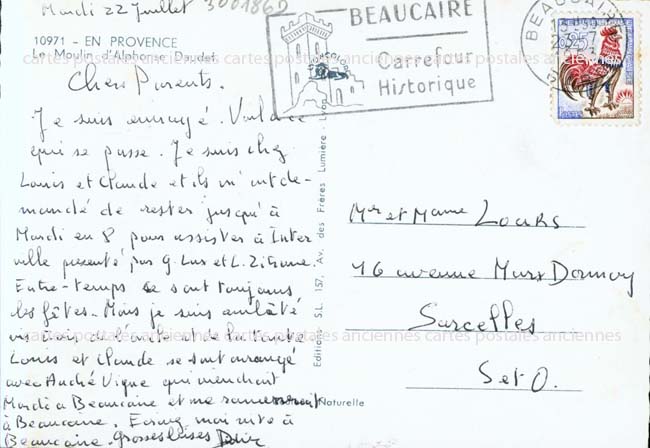 Mardi 22 Juillet
3001862
10971 - EN PROVENCE
Le Moulin d'Alphonse Daudet
Chers Parents.
Je suis ennuyé. Voilà ce
qui se passe. Je suis chez
Louis et Claude et ils m'ont de-
mandé de rester jusqu'à
Mardi en 8 pour assister à Inter
ville présenté par G. Lux et L. Zitrone.
Entre-temps ce sont toujours
les fêtes. Mais je suis embêté
vis à vis de l'oncle et de la tante
Louis et Claude se sont arrangé
avec André Vigne qui viendrait
Mardi à Beaucaire et me ramènerait
à Beaucaire. Ecrivez moi vite à
Beaucaire. Grosses bises
BEAUCAIRE
Carrefour
Historique
BEAUCAIRE
Editions S.L. 157, Av. des Frères Lumière - Lyon
Naturelle
Mr et Mame Louis
46 avenue Marx Dormoy
Sarcelles
S et O.
cartes postales anciennes cartes postales anciennes cartes postales anciennes
cartes postales anciennes cartes postales anciennes cartes postales anciennes